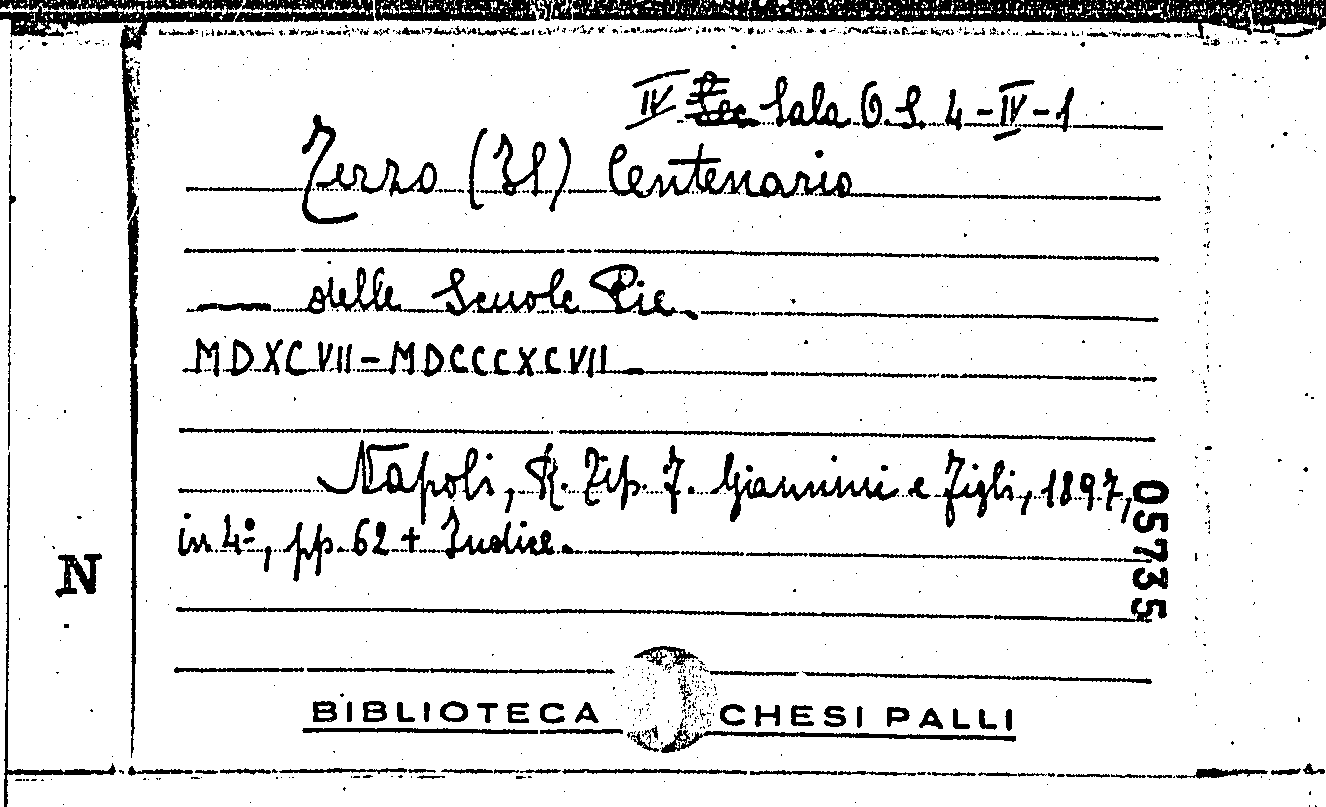 IV Sala O.S. 4-IV-1
Terzo (Il) Centenario
— delle Scuole Pie.
MDXCVII-MDCCCXCVII_
Napoli, R. Tip. F. Giannini e Figli, 1897,
in 4º, pp. 62 + Indice.
05735
N
BIBLIOTECA CHESI PALLI